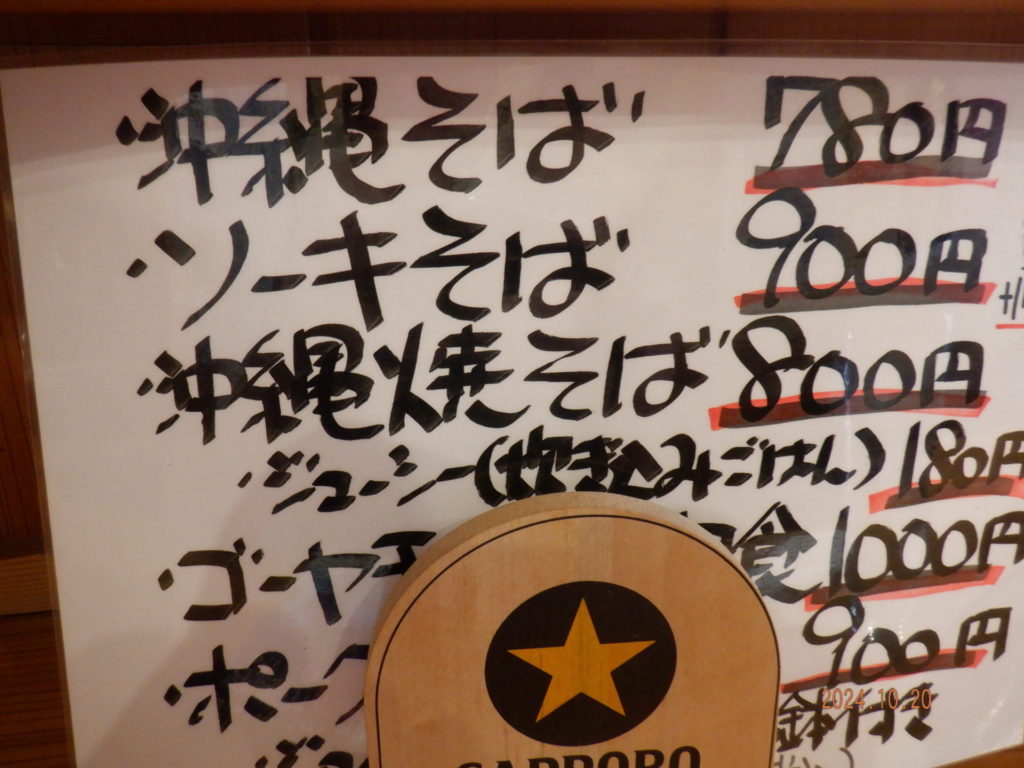 ・沖縄そば 780円
・ソーキそば 900円
・沖縄焼そば 800円
ジューシー(炊き込みごはん) 180円
・ゴーヤ 食 1000円
・ポー 900円
鉢付き
ジュ
SAPPORO
2024.10.20